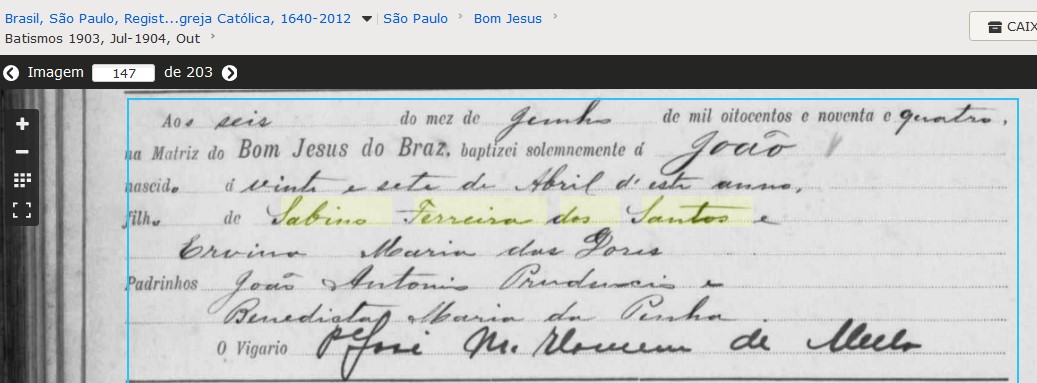 Brasil, São Paulo, Regist...greja Católica, 1640-2012 São Paulo Bom Jesus
Batismos 1903, Jul-1904, Out
CAIX
Imagem 147 de 203
Aos seis do mez de Junho de mil oitocentos e noventa e quatro,
na Matriz do Bom Jesus do Braz, baptizei solemnemente á João
nascido á vinte e sete de Abril d'este anno,
filho de Sabino Ferreira dos Santos e
Ervina Maria das Dores
Padrinhos João Antonio Prudencio e
Benedicta Maria da Penha.
O Vigario Pe José M. Homem de Mello